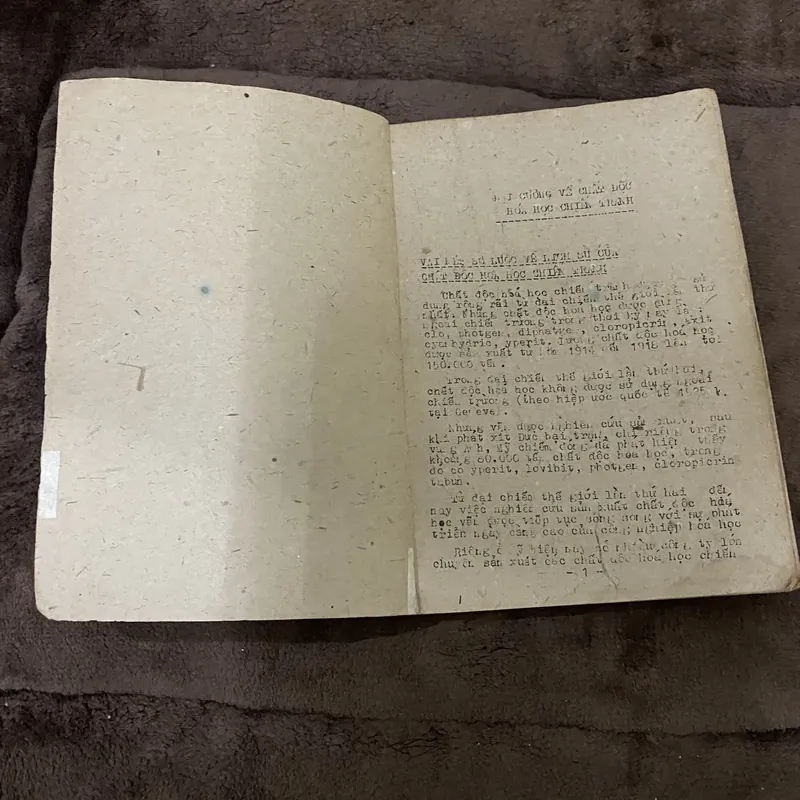 ĐẠI CƯƠNG VỀ CHẤT ĐỘC
HOÁ HỌC CHIẾN TRANH
VÀI NÉT SƠ LƯỢC VỀ LỊCH SỬ CỦA
CHẤT ĐỘC HOÁ HỌC CHIẾN TRANH
Chất độc hoá học chiến tranh sử
dụng rộng rãi từ đại chiến thế giới lần thứ
nhất. Những chất độc hoá học được dùng
ngoài chiến trường trong thời kỳ này là :
clo, photgen, diphotgen, cloropicrin, axit
cyanhydric, yperit. Lượng chất độc hoá học
được sản xuất từ năm 1914 đến 1918 lên tới
150.000 tấn.
Trong đại chiến thế giới lần thứ hai,
chất độc hoá học không được sử dụng ngoài
chiến trường (theo hiệp ước quốc tế 1925
tại Geneve).
Nhưng vẫn được nghiên cứu sản xuất, sau
khi phát xít Đức bại trận, chỉ riêng trong
vùng Anh, Mỹ chiếm đóng đã phát hiện thấy
khoảng 60.000 tấn chất độc hoá học, trong
đó có yperit, lovibit, photgen, cloropicrin
tabun.
Từ đại chiến thế giới lần thứ hai đến
nay việc nghiên cứu sản xuất chất độc hoá
học vẫn được tiếp tục song song với sự phát
triển ngày càng cao của công nghiệp hoá học
Riêng ở Mỹ hiện nay có nhiều công ty lớn
chuyên sản xuất các chất độc hoá học chiến
- 1 -